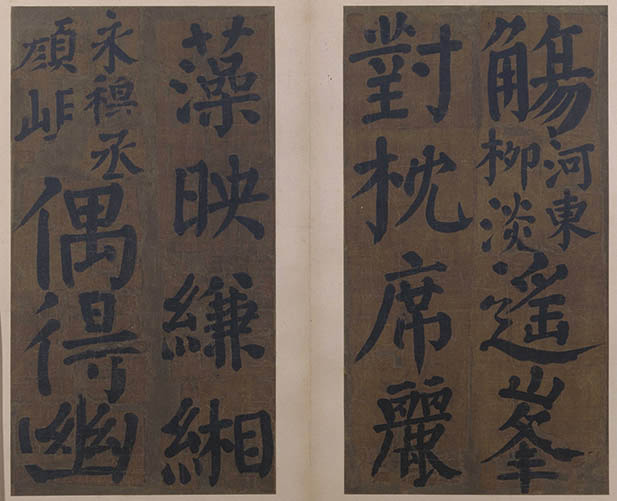 觴河東柳淡遙峯
對枕席麗
藻映縑緗
永穆丞顔岵偶得幽